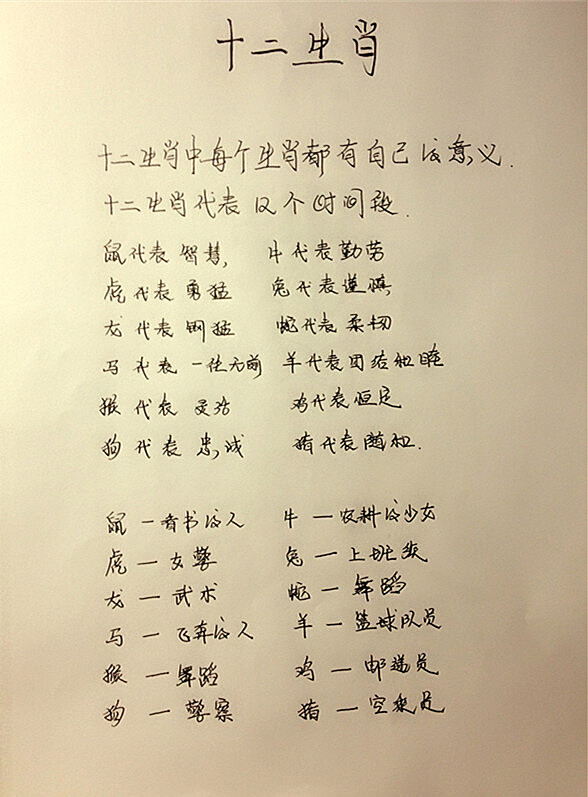 十二生肖
十二生肖中每个生肖都有自己的意义.
十二生肖代表12个时间段.
鼠代表智慧, 牛代表勤劳
虎代表勇猛 兔代表谨慎
龙代表钢猛 蛇代表柔韧
马代表一往无前 羊代表团结和睦
猴代表灵活 鸡代表恒定
狗代表忠诚 猪代表随和.
鼠—看书的人 牛—农耕的少女
虎—女警 兔—上班族
龙—武术 蛇—舞蹈
马—飞奔的人 羊—篮球队员
猴—舞蹈 鸡—邮递员
狗—警察 猪—空乘员